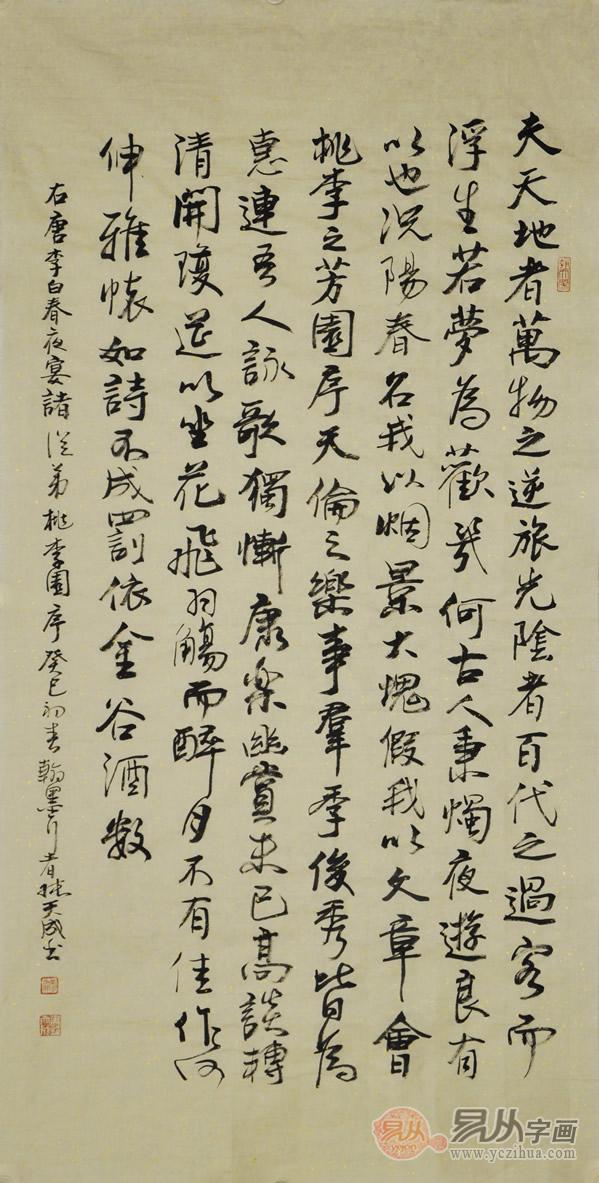 夫天地者萬物之逆旅光陰者百代之過客而
浮生若夢為歡幾何古人秉燭夜遊良有
以也況陽春召我以烟景大塊假我以文章會
桃李之芳園序天倫之樂事羣季俊秀皆為
惠連吾人詠歌獨慚康樂幽賞未已高談轉
清開瓊筵以坐花飛羽觴而醉月不有佳作何
伸雅懷如詩不成罰依金谷酒數
右唐李白春夜宴諸從弟桃李園序癸巳初春翰墨行者天成书
易从
易从字画
www.yczihua.com